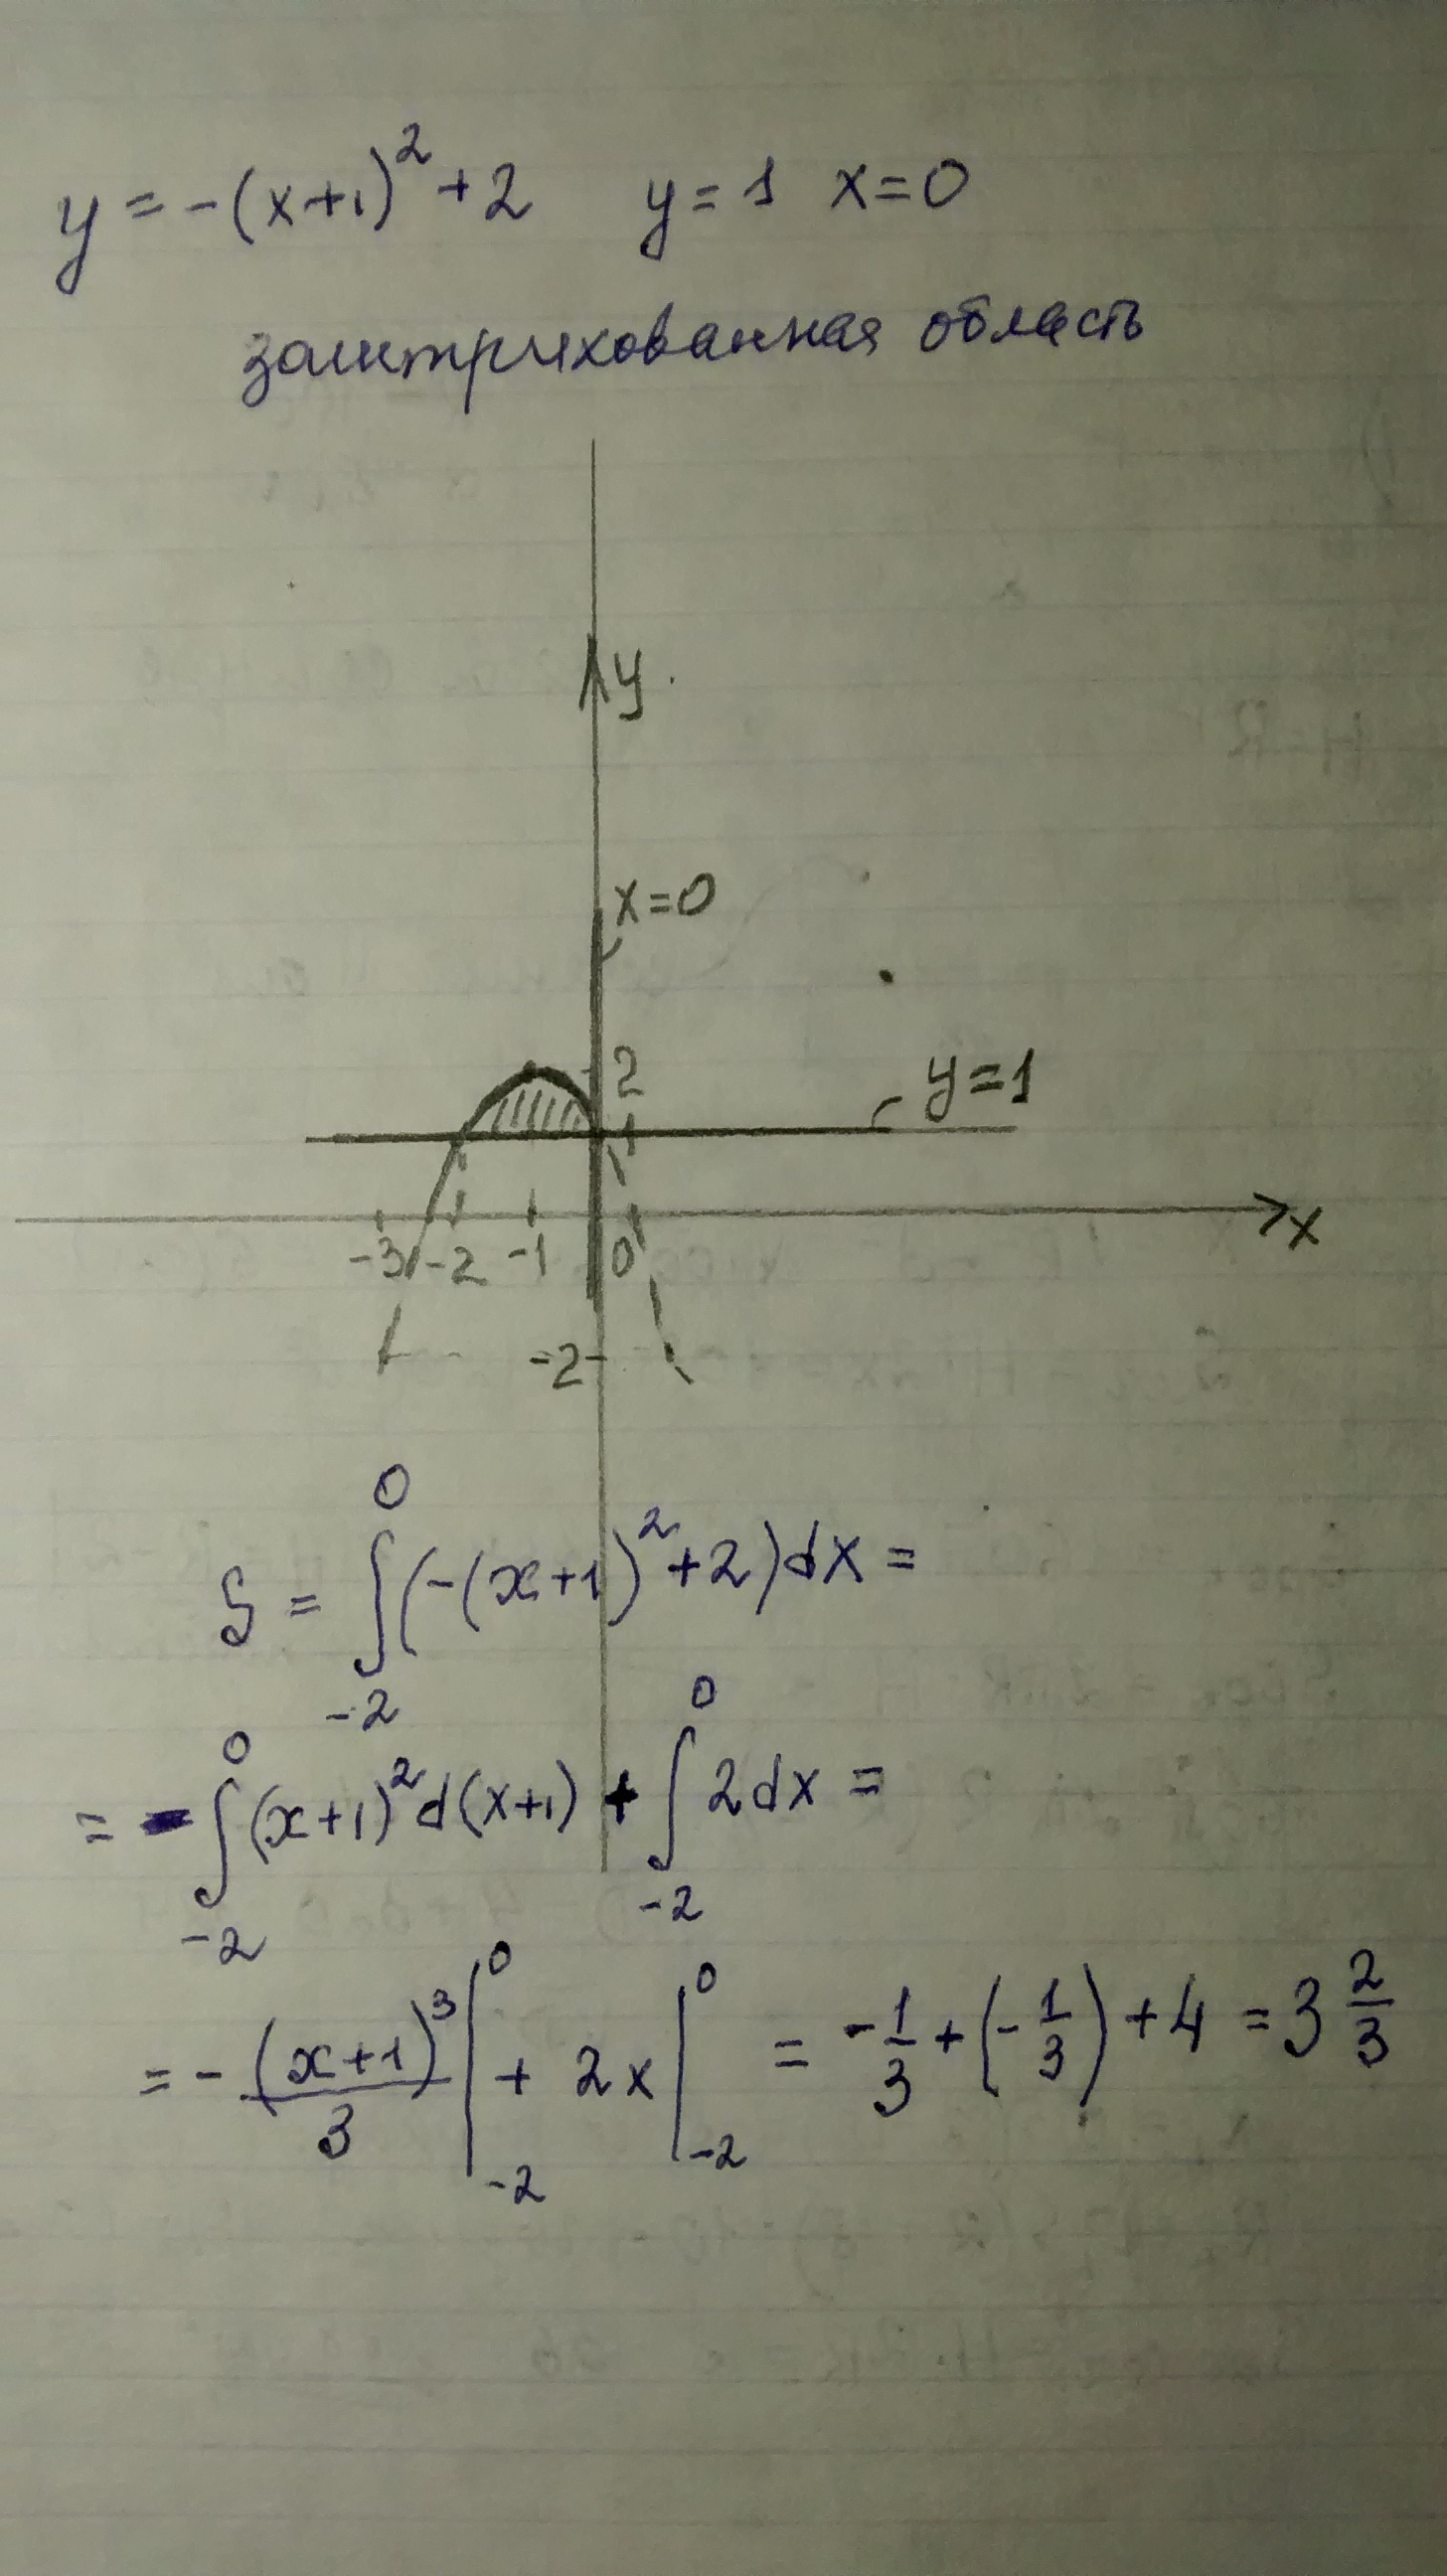 y = -(x+1)² + 2 y = 1 x = 0
заштрихованная область
y
x=0
2
y=1
1
x
-3 -2 -1 0
-2
S = ∫₋₂⁰ (-(x+1)² + 2) dx =
= - ∫₋₂⁰ (x+1)² d(x+1) + ∫₋₂⁰ 2 dx =
= - (x+1)³/3 |₋₂⁰ + 2x |₋₂⁰ = - 1/3 + (- 1/3) + 4 = 3 2/3